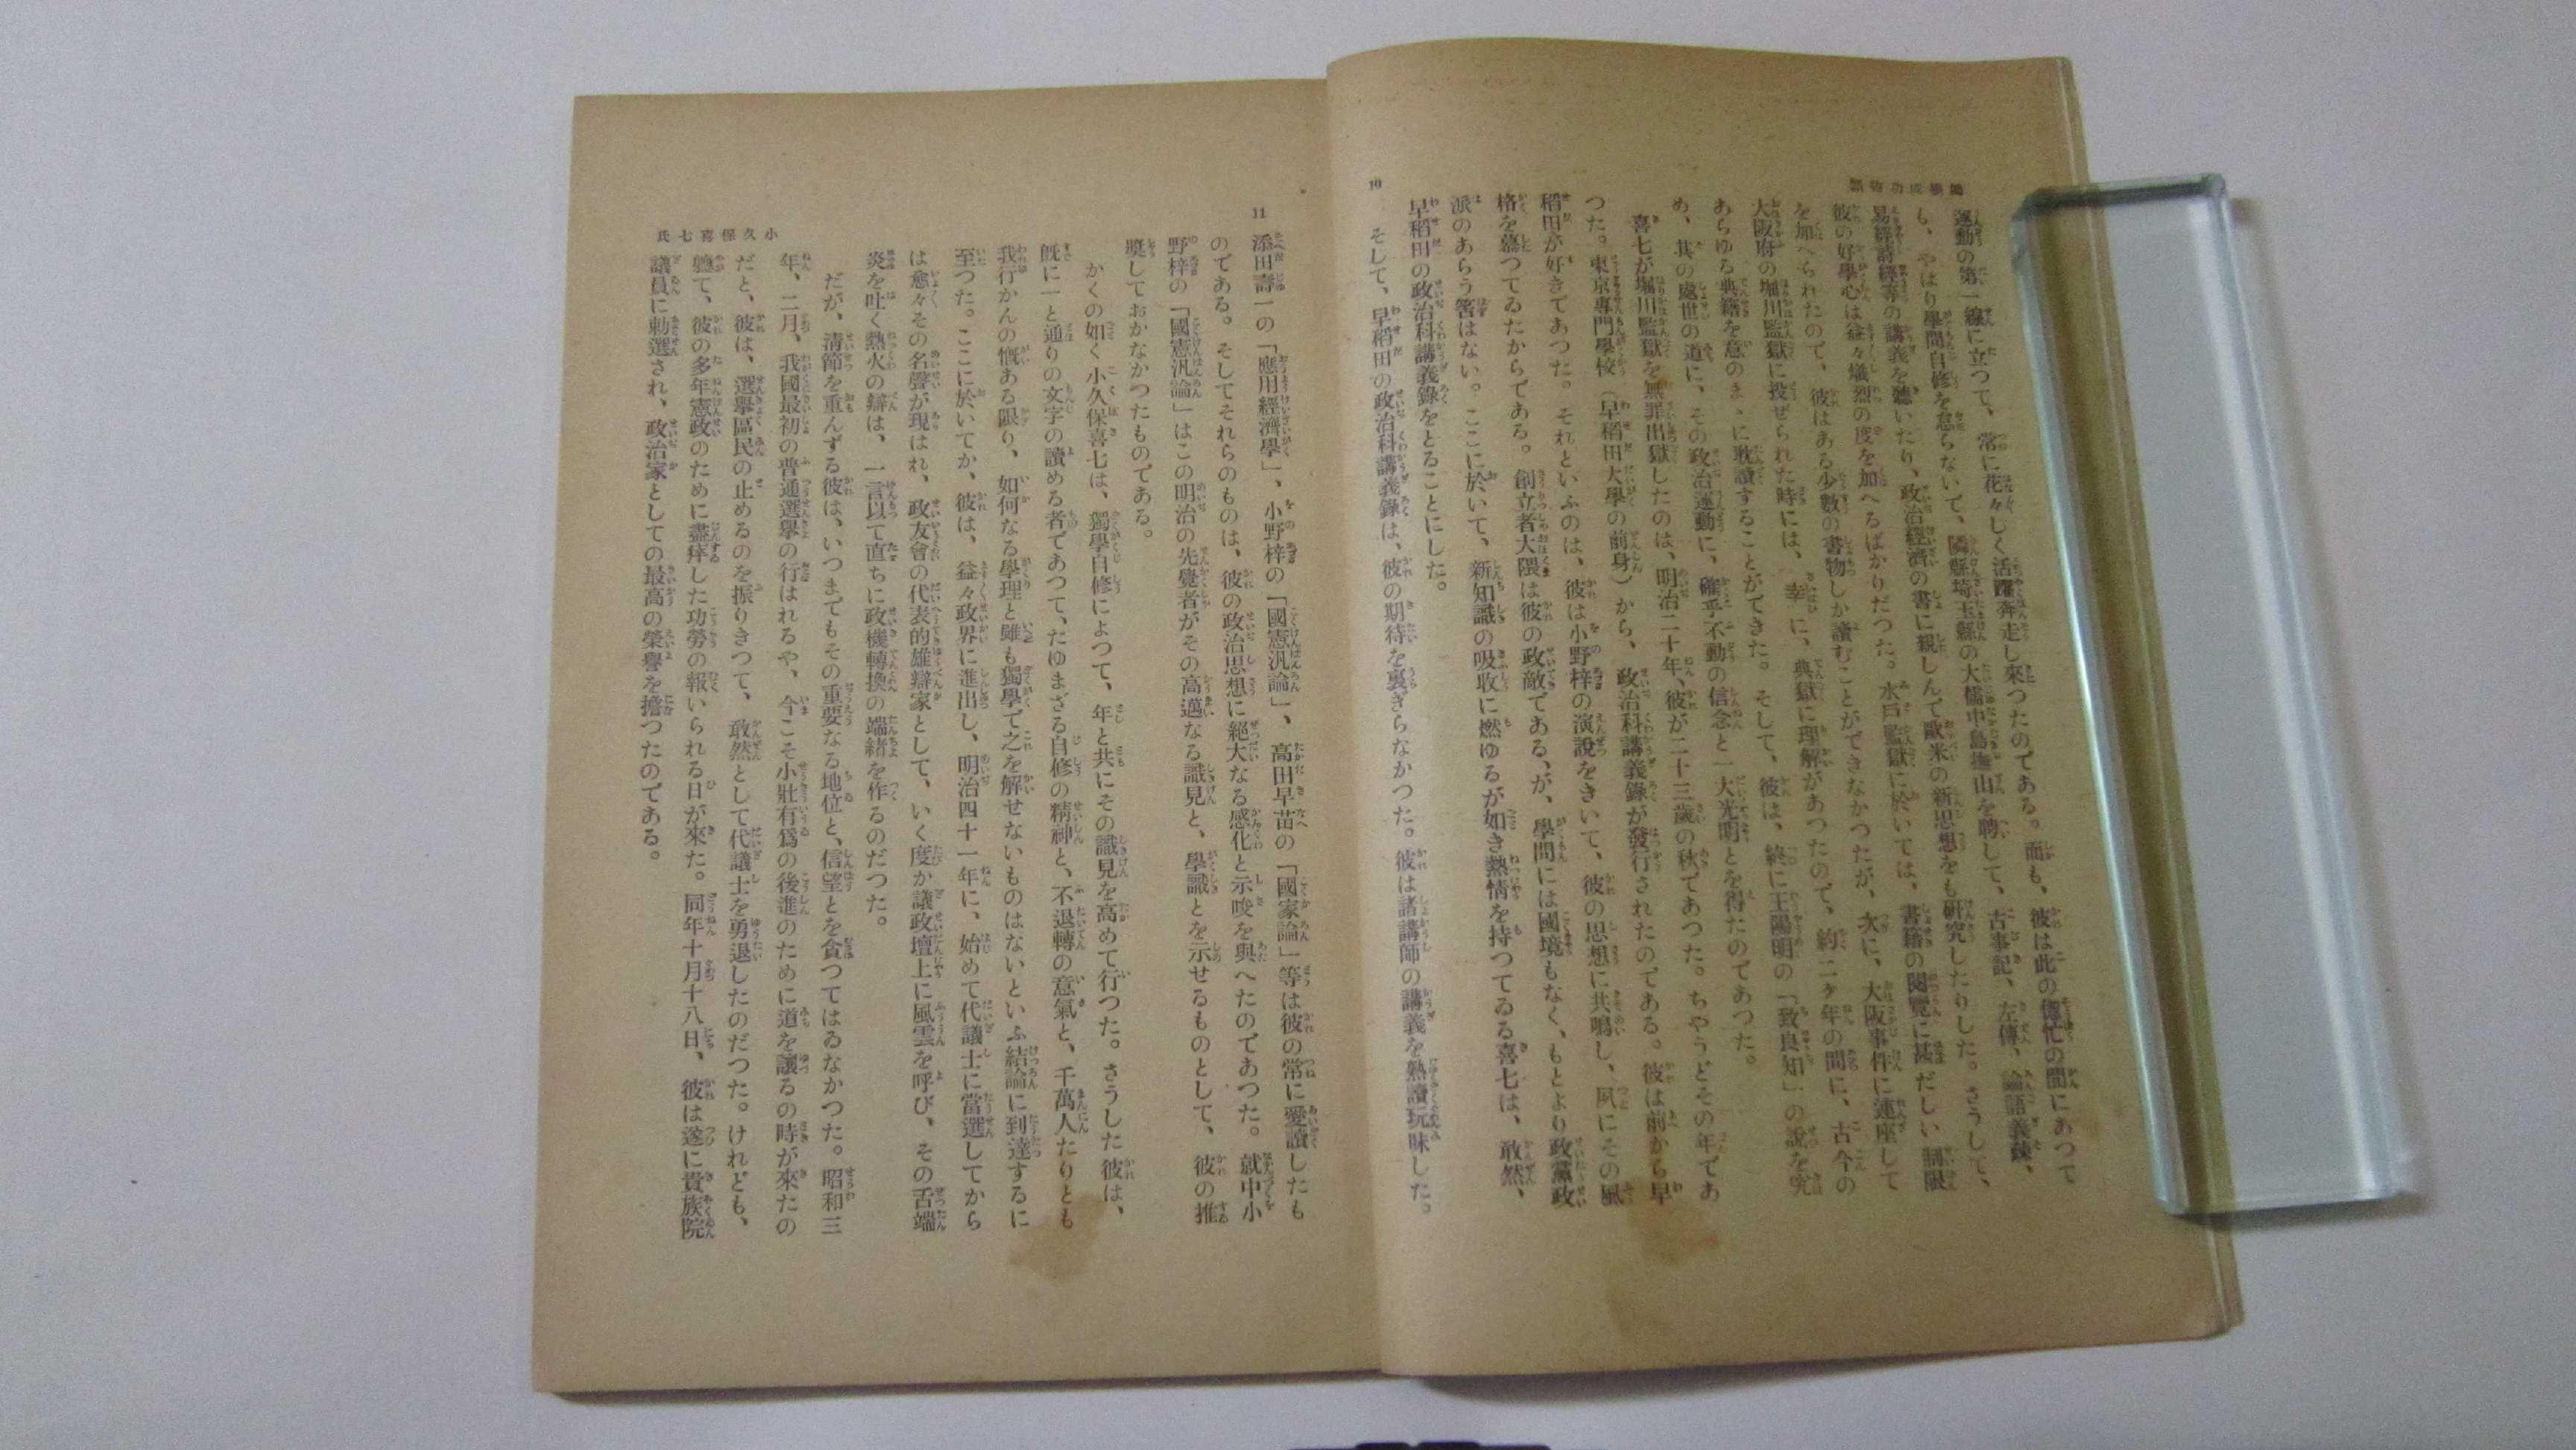 運動の第一線に立つて、常に花々しく活躍奔走し來つたのである。而も、彼は此の傯忙の間にあつて
も、やはり學問自修を怠らないで、隣縣埼玉縣の大儒中島撫山を聘して、古事記、左傳、論語義疏、
易經詩經等の講義を聽いたり、政治經濟の書に親しんで歐米の新思想をも研究したりした。さうして、
彼の好學心は益々熾烈の度を加へるばかりだつた。水戸監獄に於いては、書籍の閲覽に甚だしい制限
を加へられたので、彼はある少數の書物しか讀むことができなかつたが、次に、大阪事件に連座して
大阪府の堀川監獄に投ぜられた時には、幸に、典獄に理解があつたので、約二ケ年の間に、古今の
あらゆる典籍を意のまゝに耽讀することができた。そして、彼は、終に王陽明の「致良知」の說を究
め、其の處世の道に、その政治運動に、確乎不動の信念と一大光明とを得たのであつた。
喜七が堀川監獄を無罪出獄したのは、明治二十年、彼が二十三歲の秋であつた。ちやうどその年であ
つた。東京專門學校（早稻田大學の前身）から、政治科講義錄が發行されたのである。彼は前から早
稻田が好きであつた。それといふのは、彼は小野梓の演說をきいて、彼の思想に共鳴し、夙にその風
格を慕つてゐたからである。創立者大隈は彼の政敵である、が、學問には國境もなく、もとより政黨政
派のあらう筈はない。ここに於いて、新知識の吸收に燃ゆるが如き熱情を持つてゐる喜七は、敢然、
早稻田の政治科講義錄をとることにした。
そして、早稻田の政治科講義錄は、彼の期待を裏ぎらなかつた。彼は諸講師の講義を熟讀玩味した。
10
11
添田壽一の「應用經濟學」、小野梓の「國憲汎論」、高田早苗の「國家論」等は彼の常に愛讀したも
のである。そしてそれらのものは、彼の政治思想に絕大なる感化と示唆を與へたのであつた。就中小
野梓の「國憲汎論」はこの明治の先覺者がその高邁なる識見と、學識とを示せるものとして、彼の推
奬しておかなかつたものである。
かくの如く小久保喜七は、獨學自修によつて、年と共にその識見を高めて行つた。さうした彼は、
既に一と通りの文字の讀める者であつて、たゆまざる自修の精神と、不退轉の意氣と、千萬人たりとも
我行かんの慨ある限り、如何なる學理と雖も獨學で之を解せないものはないといふ結論に到達するに
至つた。ここに於いてか、彼は、益々政界に進出し、明治四十一年に、始めて代議士に當選してから
は愈々その名聲が現はれ、政友會の代表的雄辯家として、いく度か議政壇上に風雲を呼び、その舌端
炎を吐く熱火の辯は、一言以て直ちに政機轉換の端緒を作るのだつた。
だが、淸節を重んずる彼は、いつまでもその重要なる地位と、信望とを貪つてはゐなかつた。昭和三
年、二月、我國最初の普通選擧の行はれるや、今こそ小壯有爲の後進のために道を讓るの時が來たの
だと、彼は、選擧區民の止めるのを振りきつて、敢然として代議士を勇退したのだつた。けれども、
軈て、彼の多年憲政のために盡瘁した功勞の報いられる日が來た。同年十月十八日、彼は遂に貴族院
議員に勅選され、政治家としての最高の榮譽を擔つたのである。
小久保喜七氏